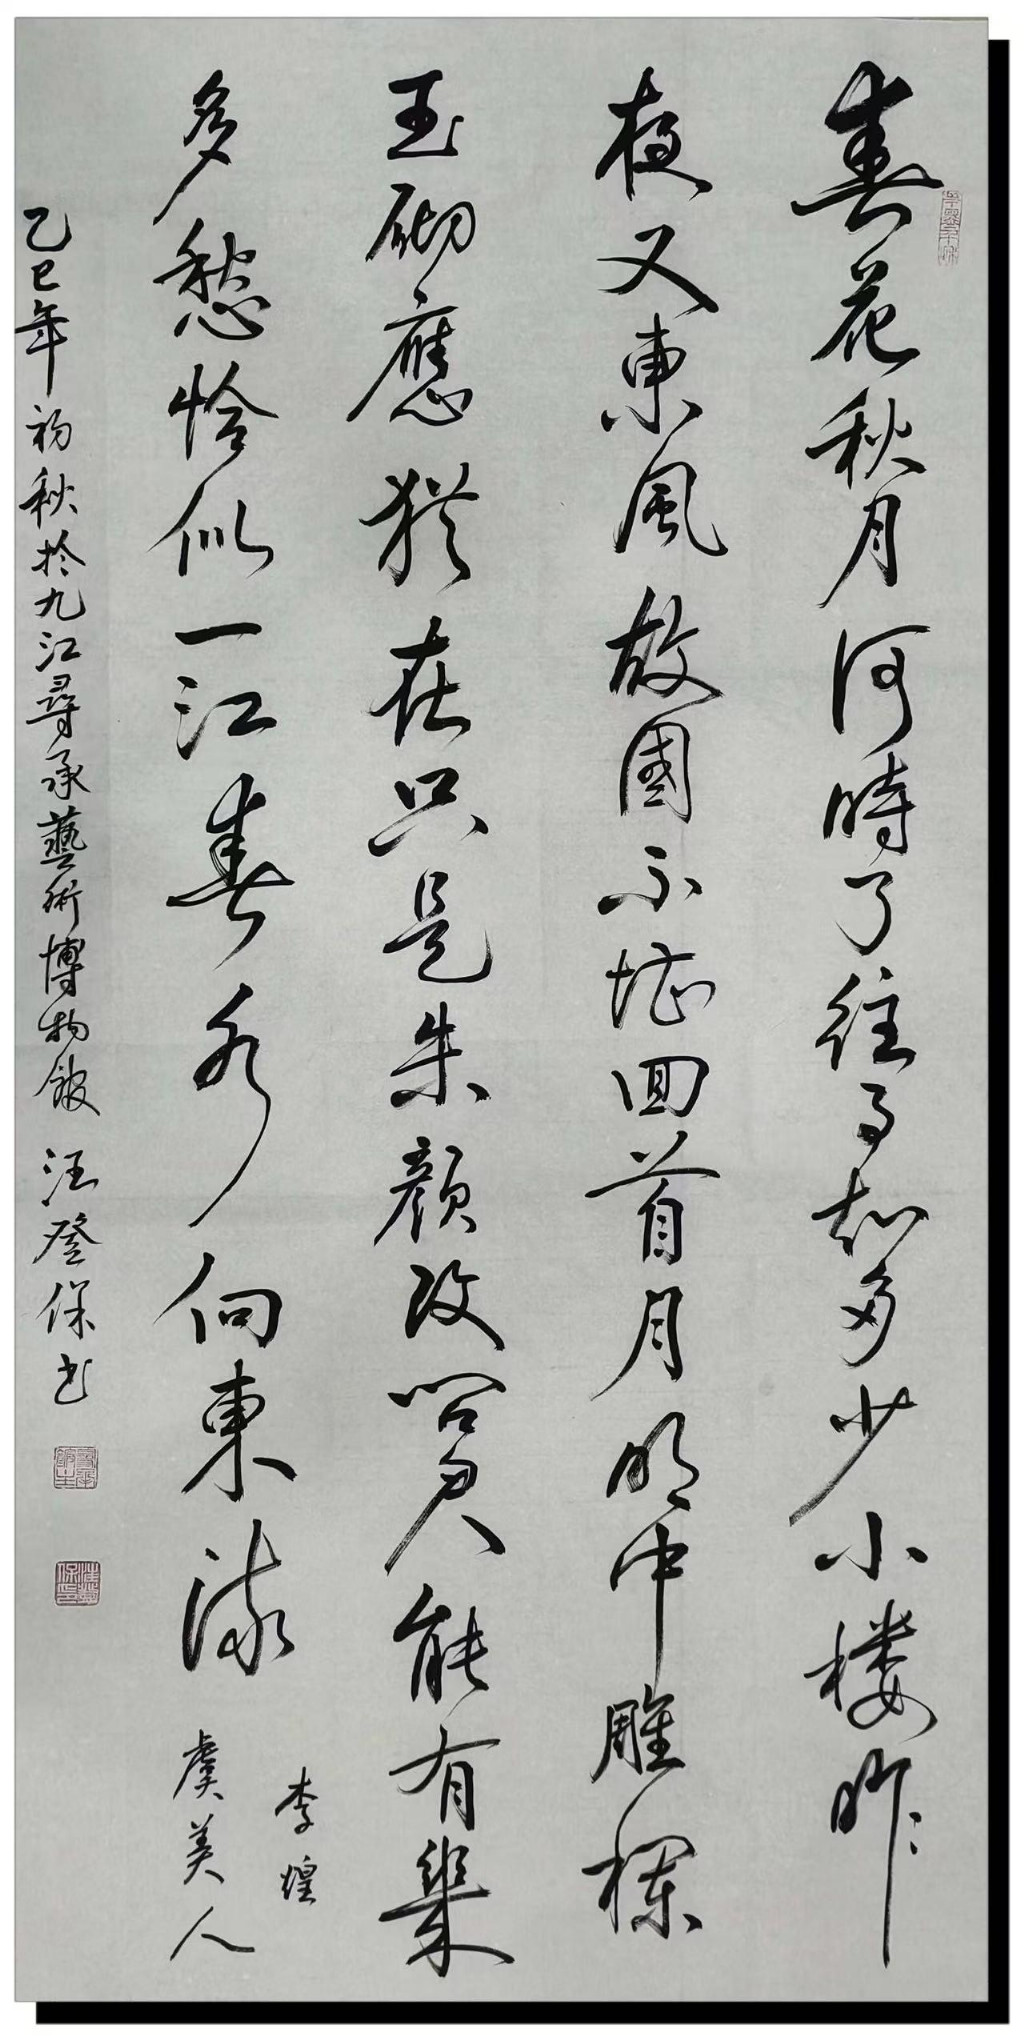 春花秋月何時了往事知多少小楼昨
夜又東風故國不堪回首月明中雕欄
玉砌應猶在只是朱顏改問君能有幾
多愁恰似一江春水向東流
李煜
虞美人
乙巳年初秋於九江尋承藝術博物館 汪登保書